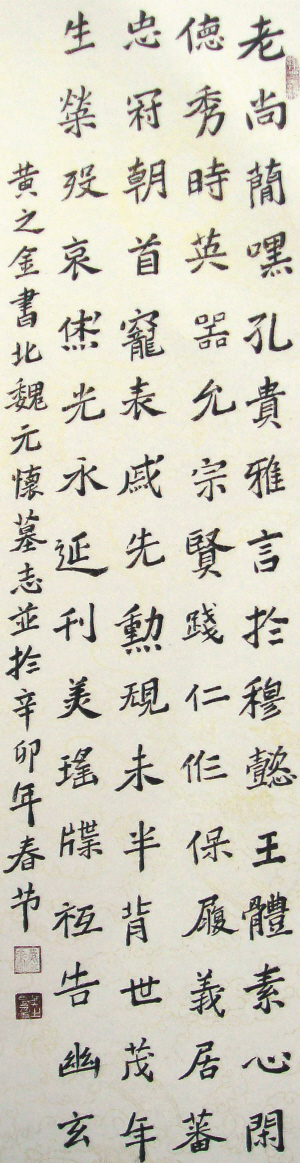 老尚蕑嘿孔貴雅言於穆懿王體素心閑
德秀時英器允宗賢踐仁作保履義居蕃
忠冠朝首寵表戚先勳規未半背世茂年
生榮歿哀儵光永延刊美瑤牒祗告幽玄
黃之金書北魏元懷墓志並於辛卯年春节